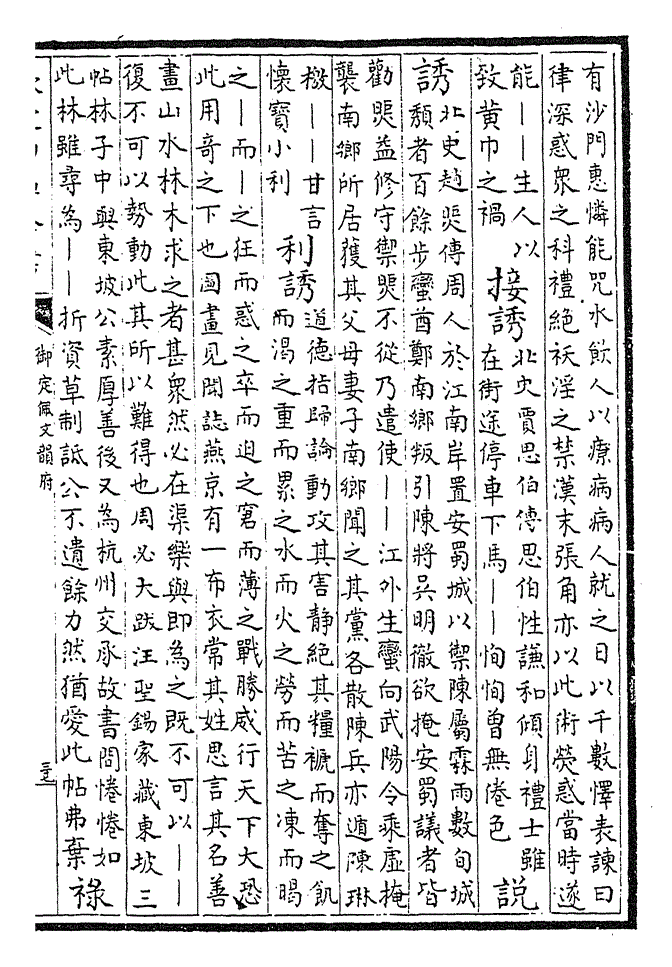 有沙門惠憐能咒水飲人以療病病人就之日以千數懌表諫曰
律深惑衆之科禮絶祅淫之禁漢末張角亦以此術熒惑當時遂
能——生人以
致黄巾之禍
接誘
北史賈思伯傳思伯性謙和傾身禮士雖
在街途停車下馬——恂恂曾無倦色
説
誘
北史趙煚傳周人於江南岸置安蜀城以禦陳屬霖雨數旬城
頽者百餘步蠻酋鄭南鄉叛引陳將吳明徹欲掩安蜀議者皆
勸煚益修守禦煚不從乃遣使——江外生蠻向武陽令乘虛掩
襲南鄉所居獲其父母妻子南鄉聞之其黨各散陳兵亦遁陳琳
檄——甘言
懷寶小利
利誘
道德指歸論動攻其害静絶其糧褫而奪之飢
而渴之重而累之水而火之勞而苦之凍而暍
之—而—之狂而惑之卒而迫之窘而薄之戰勝威行天下大恐
此用奇之下也圖畫見聞誌燕京有一布衣常其姓思言其名善
畫山水林木求之者甚衆然必在渠樂與即為之既不可以——
復不可以勢動此其所以難得也周必大跋汪聖錫家藏東坡三
帖林子中與東坡公素厚善後又為杭州交承故書問惓惓如
此林雖尋為——折資草制詆公不遺餘力然猶愛此帖弗棄
祿
御定佩文韻府